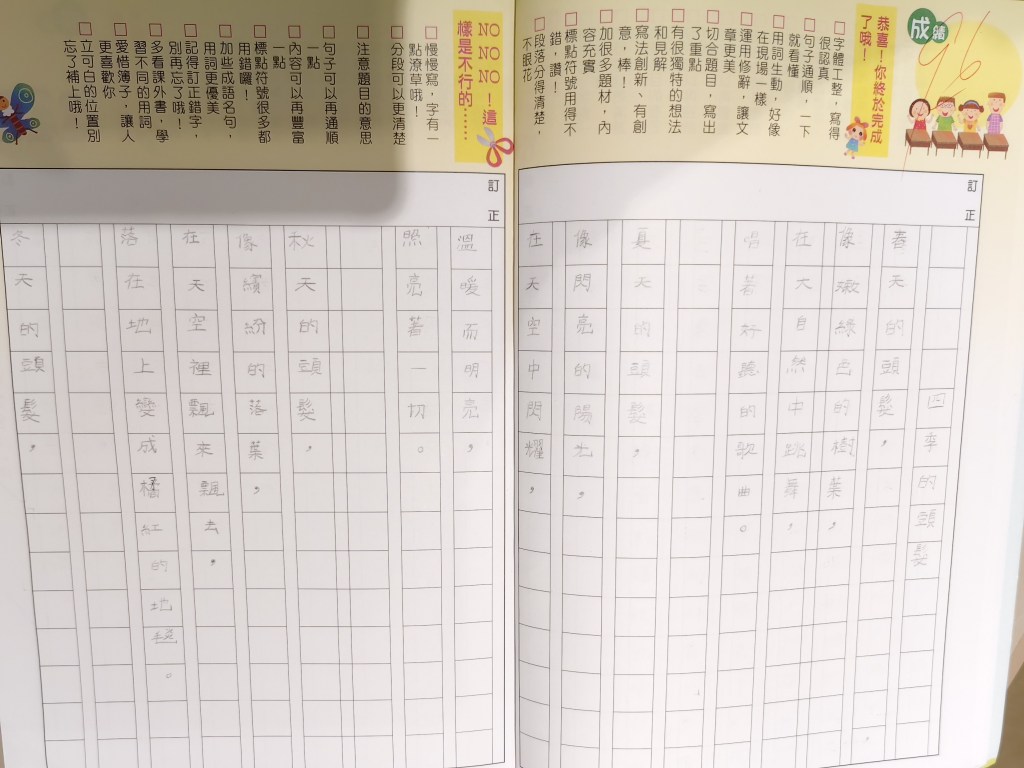 成績
96
恭喜！你終於完成
了哦！
□字體工整，寫得
很認真
□句子通順，一下
就看懂
□用詞生動，好像
在現場一樣
□運用修辭，讓文
章更美
□切合題目，寫出
了重點
□有很獨特的想法
和見解
□寫法創新、有創
意，棒！
□加很多題材，內
容充實
□標點符號用得不
錯，讚！
□段落分得清楚，
不眼花
訂正
四季的頭髮
春天的頭髮，
像嫩綠色的樹葉，
在大自然中跳舞，
唱著好聽的歌曲。
夏天的頭髮，
像閃亮的陽光，
在天空中閃耀，
NO NO NO！這
樣是不行的……
□慢慢寫，字有一
點潦草哦！
□分段可以更清楚
□注意題目的意思
□句子可以再通順
一點
□內容可以再豐富
一點
□標點符號很多都
用錯囉！
□加些成語名句，
用詞更優美
□記得訂正錯字，
別再忘了哦！
□多看課外書，學
習不同的用詞
□愛惜簿子，讓人
更喜歡你
□立可白的位置別
忘了補上哦！
訂正
溫暖而明亮，
照亮著一切。
秋天的頭髮，
像繽紛的落葉，
在天空裡飄來飄去，
落在地上變成橘紅的地毯。
冬天的頭髮，